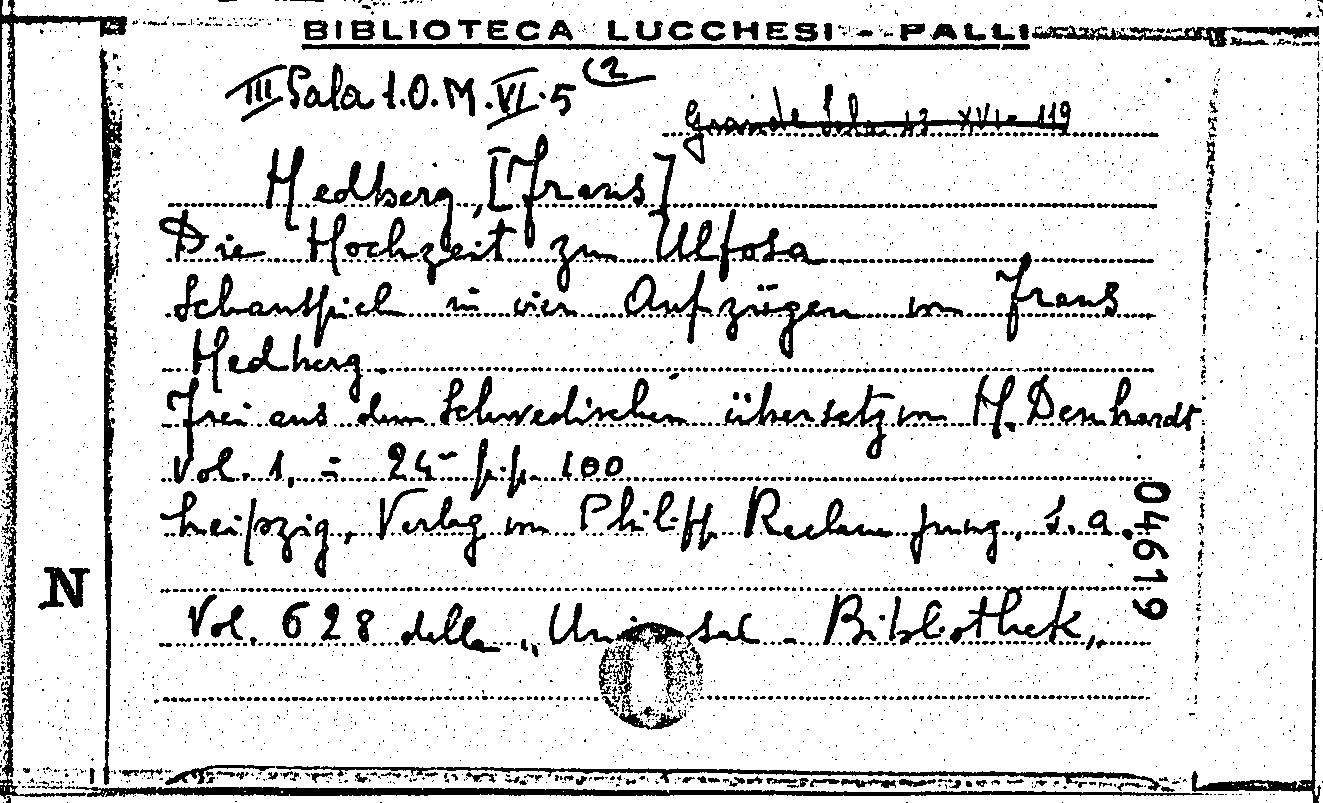 BIBLIOTECA LUCCHESI - PALLI
III Sala 1.O.M.VI.5 (2
Grande Sala 13 XVI 119
Hedberg, [Frans]
Die Hochzeit zu Ulfosa
Schauspiel in vier Aufzügen von Frans
Hedberg.
Frei aus dem Schwedischen übersetz von H. Denhardt
Vol. 1, in 24° p.p. 100
Leipzig, Verlag von Philipp Reclam jung, s.a.
04619
N
Vol. 628 della „Universal - Bibliothek„